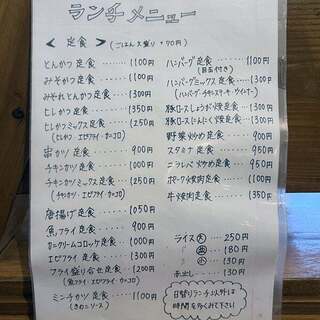 ランチメニュー
< 定食 > (ごはん大盛り + 70円)
とんかつ定食 ・・・・・ 1100円
みそかつ定食 ・・・・・ 1100円
みぞれとんかつ定食 ・・・ 1300円
ヒレかつ定食 ・・・・・ 1350円
ヒレかつミックス定食 ・・・ 1250円
(ヒレかつ・エビフライ・カニコロ)
串カツ定食 ・・・・・ 900円
チキンカツ定食 ・・・・・ 1000円
チキンカツミックス定食 ・・・ 1150円
(チキンカツ・エビフライ・カニコロ)
唐揚げ定食 ・・・・・ 1050円
魚フライ定食 ・・・・・ 900円
カニクリームコロッケ定食 ・・・ 1000円
エビフライ定食 ・・・・・ 1300円
フライ盛り合せ定食 ・・・ 1200円
(魚フライ・エビフライ・カニコロ)
ミンチカツ定食 ・・・・・ 1100円
(きのこソース)
ハンバーグ定食 ・・・・・ 1100円
(目玉付き)
ハンバーグミックス定食 ・・・ 1300円
(ハンバーグ・チキンステーキ・ウインナー)
豚ロースしょうが焼定食 ・・・ 1300円
豚ロースにんにく焼定食 ・・・ 1300円
野菜炒め定食 ・・・・・ 900円
スタミナ定食 ・・・・・ 950円
ニラレバ炒め定食 ・・・ 950円
ポーク焼肉定食 ・・・・・ 1100円
牛焼肉定食 ・・・・・ 1350円
ライス 大 ・・・ 250円
中 ・・・ 180円
小 ・・・ 130円
赤出し ・・・ 130円
日替りランチ以外は
時間を多くおとり下さい!